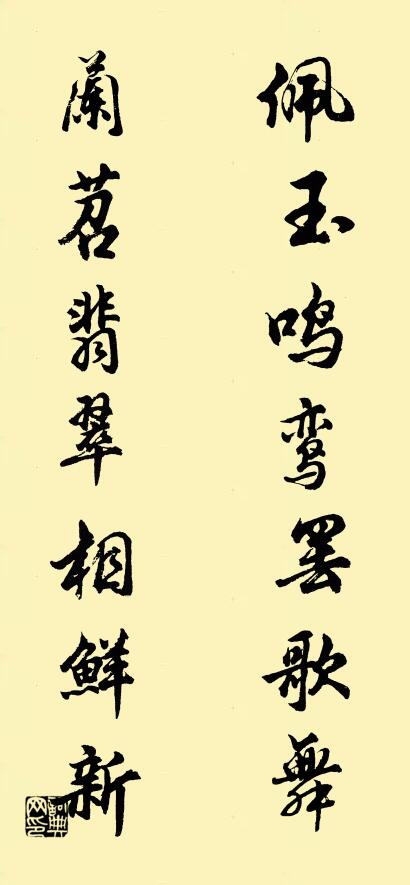 佩玉鸣鸾罢歌舞
蘭苕翡翠相鮮新